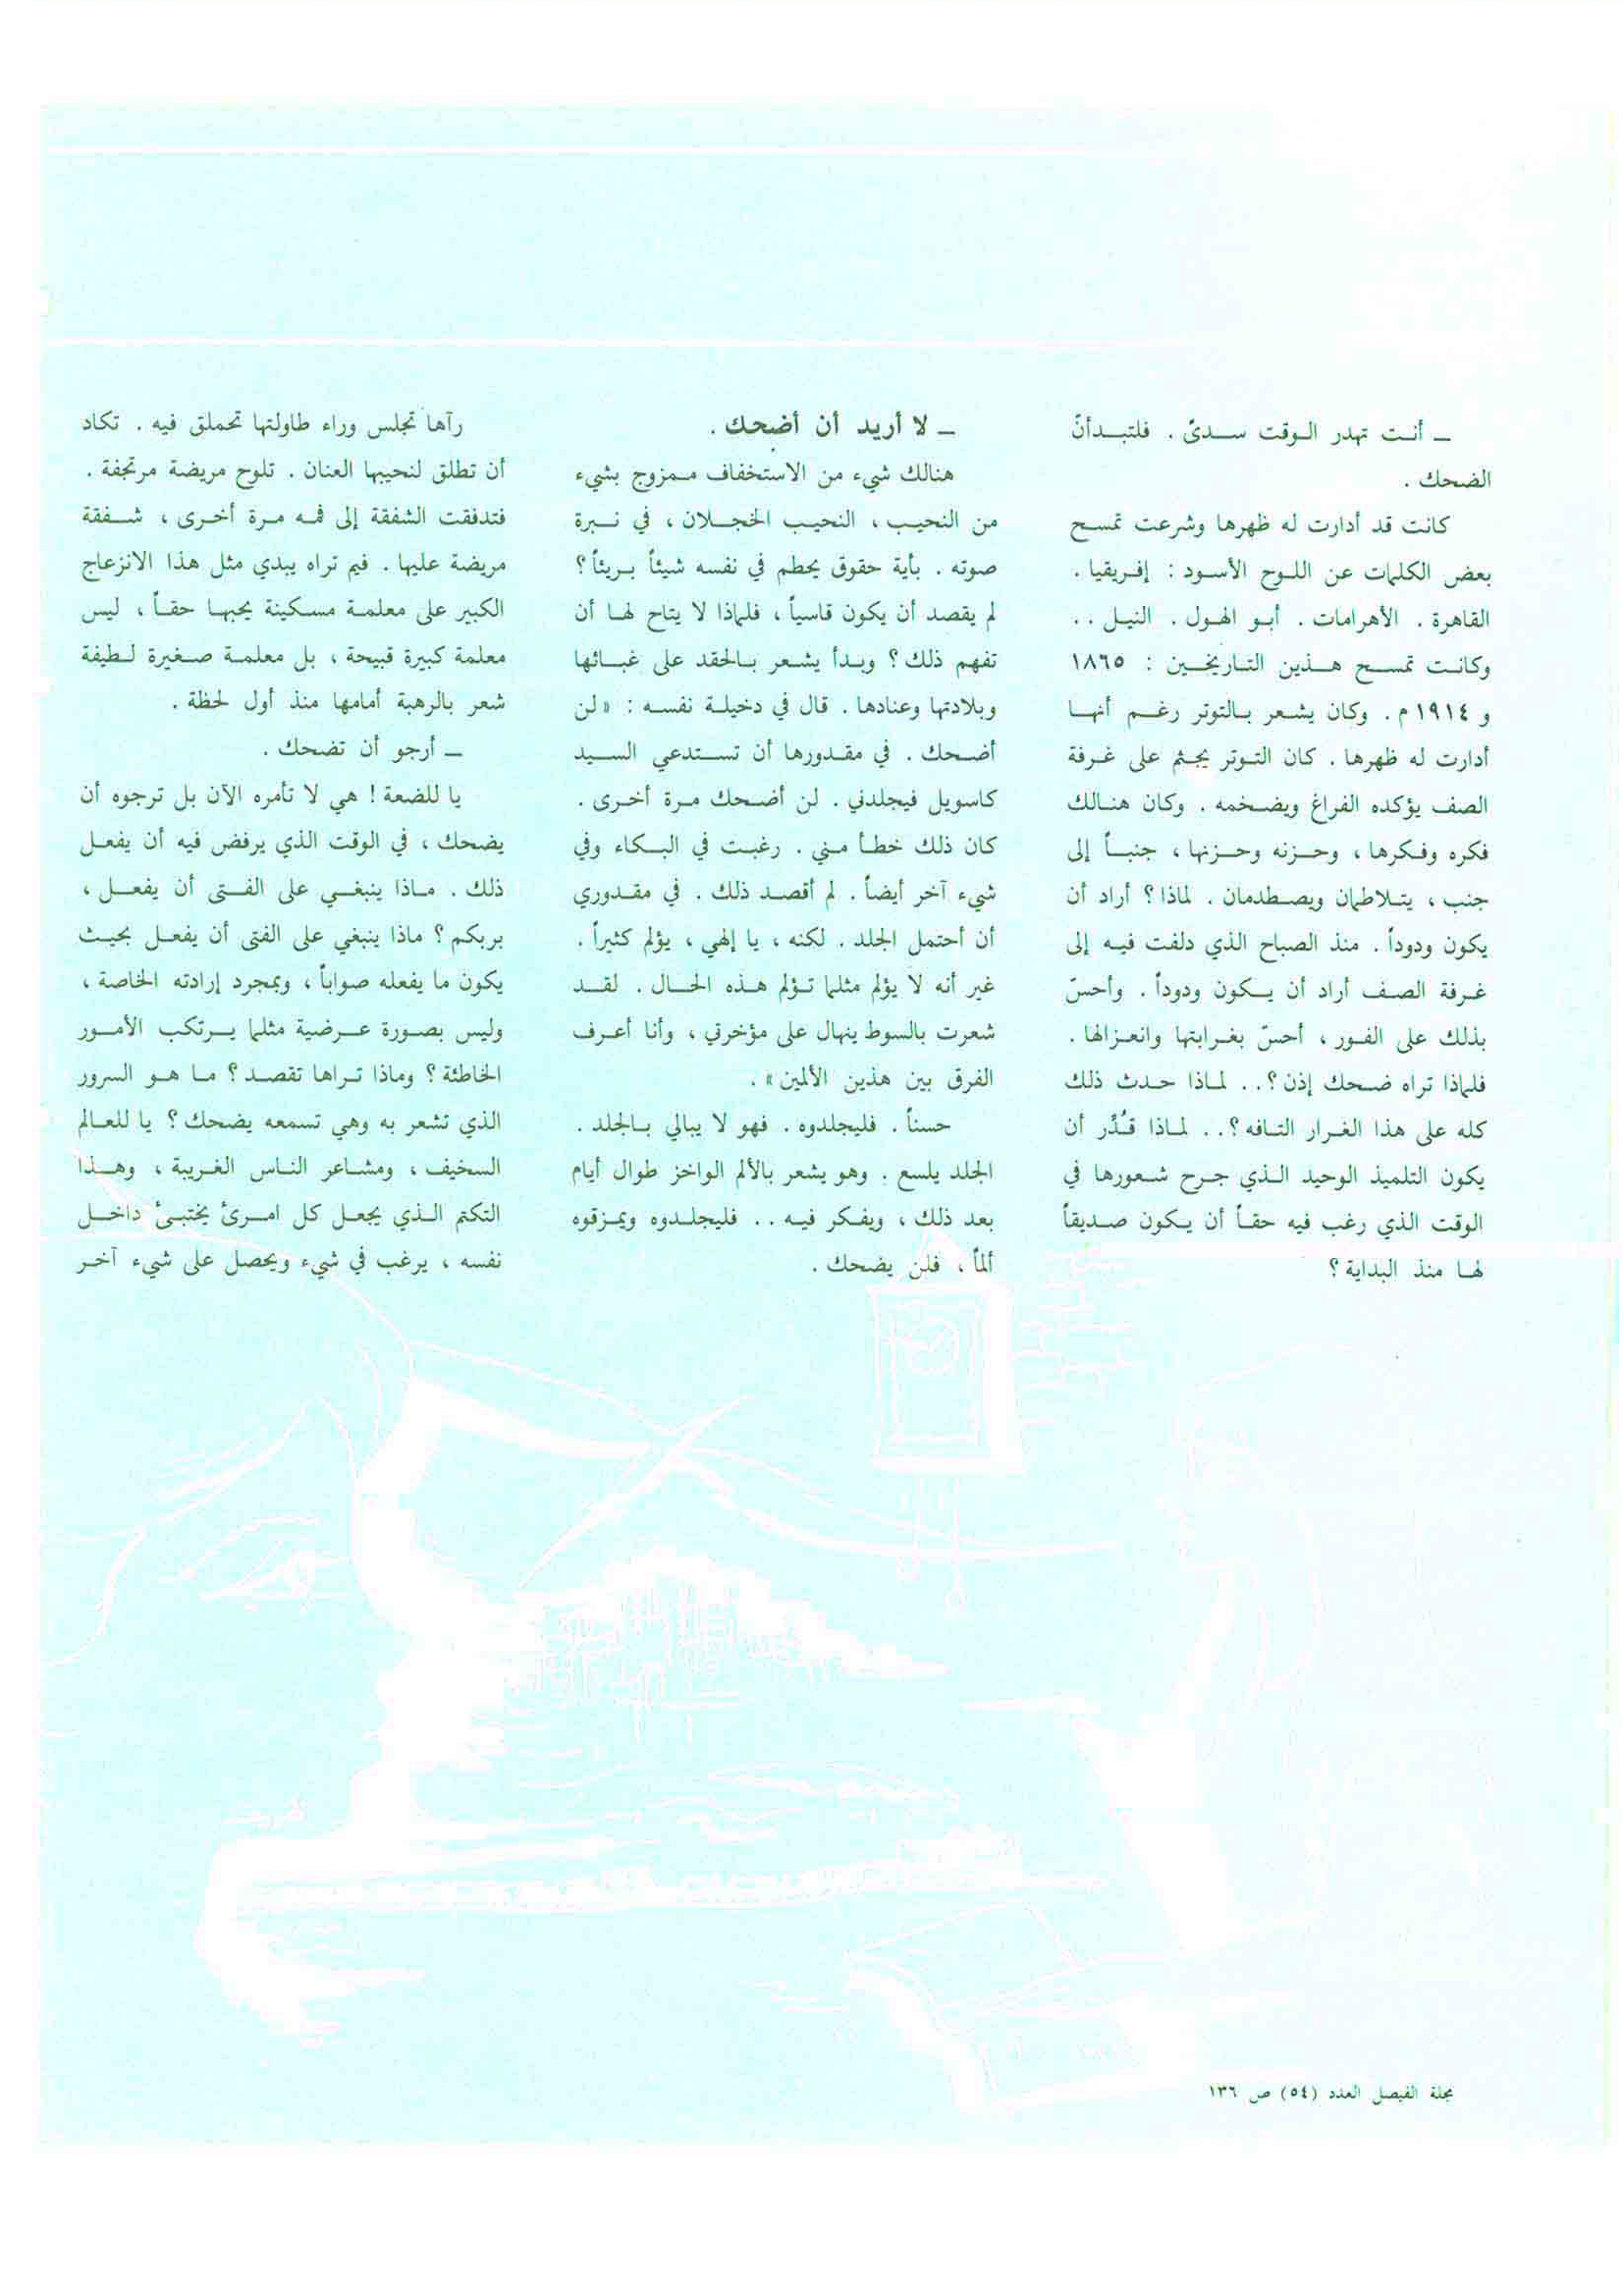 ــ أنت تهدر الوقت سدىً . فلتبدأنّ
الضحك .
كانت قد أدارت له ظهرها وشرعت تمسح
بعض الكلمات عن اللوح الأسود : إفريقيا .
القاهرة . الأهرامات . أبو الهول . النيل . .
وكانت تمسح هذين التاريخين : ١٨٦٥
و ١٩١٤ م . وكان يشعر بالتوتر رغم أنها
أدارت له ظهرها . كان التوتر يجثم على غرفة
الصف يؤكده الفراغ ويضخمه . وكان هنالك
فكره وفكرها ، وحزنه وحزنها ، جنباً إلى
جنب ، يتلاطمان ويصطدمان . لماذا ؟ أراد أن
يكون ودوداً . منذ الصباح الذي دلفت فيه إلى
غرفة الصف أراد أن يكون ودوداً . وأحسّ
بذلك على الفور ، أحسّ بغرابتها وانعزالها .
فلماذا تراه ضحك إذن ؟ . . لماذا حدث ذلك
كله على هذا الغرار التافه ؟ . . لماذا قُدِّر أن
يكون التلميذ الوحيد الذي جرح شعورها في
الوقت الذي رغب فيه حقاً أن يكون صديقاً
لها منذ البداية ؟
ــ لا أريد أن أضحك .
هنالك شيء من الاستخفاف ممزوج بشيء
من النحيب ، النحيب الخجلان ، في نبرة
صوته . بأية حقوق يحطم في نفسه شيئاً بريئاً ؟
لم يقصد أن يكون قاسياً ، فلماذا لا يتاح لها أن
تفهم ذلك ؟ وبدأ يشعر بالحقد على غبائها
وبلادتها وعنادها . قال في دخيلة نفسه : « لن
أضحك . في مقدورها أن تستدعي السيد
كاسويل فيجلدني . لن أضحك مرة أخرى .
كان ذلك خطأ مني . رغبت في البكاء وفي
شيء آخر أيضاً . لم أقصد ذلك . في مقدوري
أن أحتمل الجلد . لكنه ، يا إلهي ، يؤلم كثيراً .
غير أنه لا يؤلم مثلما تؤلم هذه الحال . لقد
شعرت بالسوط ينهال على مؤخرتي ، وأنا أعرف
الفرق بين هذين الألمين » .
حسناً . فليجلدوه . فهو لا يبالي بالجلد .
الجلد يلسع . وهو يشعر بالألم الواخز طوال أيام
بعد ذلك ، ويفكر فيه . . فليجلدوه ويمزقوه
ألماً ، فلن يضحك .
رآها تجلس وراء طاولتها تحملق فيه . تكاد
أن تطلق لنحيبها العنان . تلوح مريضة مرتجفة .
فتدفقت الشفقة إلى فمه مرة أخرى ، شفقة
مريضة عليها . فيم تراه يبدي مثل هذا الانزعاج
الكبير على معلمة مسكينة يحبها حقاً ، ليس
معلمة كبيرة قبيحة ، بل معلمة صغيرة لطيفة
شعر بالرهبة أمامها منذ أول لحظة .
ــ أرجو أن تضحك .
يا للضعة ! هي لا تأمره الآن بل ترجوه أن
يضحك ، في الوقت الذي يرفض فيه أن يفعل
ذلك . ماذا ينبغي على الفتى أن يفعل ،
بربكم ؟ ماذا ينبغي على الفتى أن يفعل بحيث
يكون ما يفعله صواباً ، وبمجرد إرادته الخاصة ،
وليس بصورة عرضية مثلما يرتكب الأمور
الخاطئة ؟ وماذا تراها تقصد ؟ ما هو السرور
الذي تشعر به وهي تسمعه يضحك ؟ يا للعالم
السخيف ، ومشاعر الناس الغريبة ، وهذا
التكتم الذي يجعل كل امرئ يختبئ داخل
نفسه ، يرغب في شيء ويحصل على شيء آخر
مجلة الفيصل العدد (٥٤) ص ١٣٦